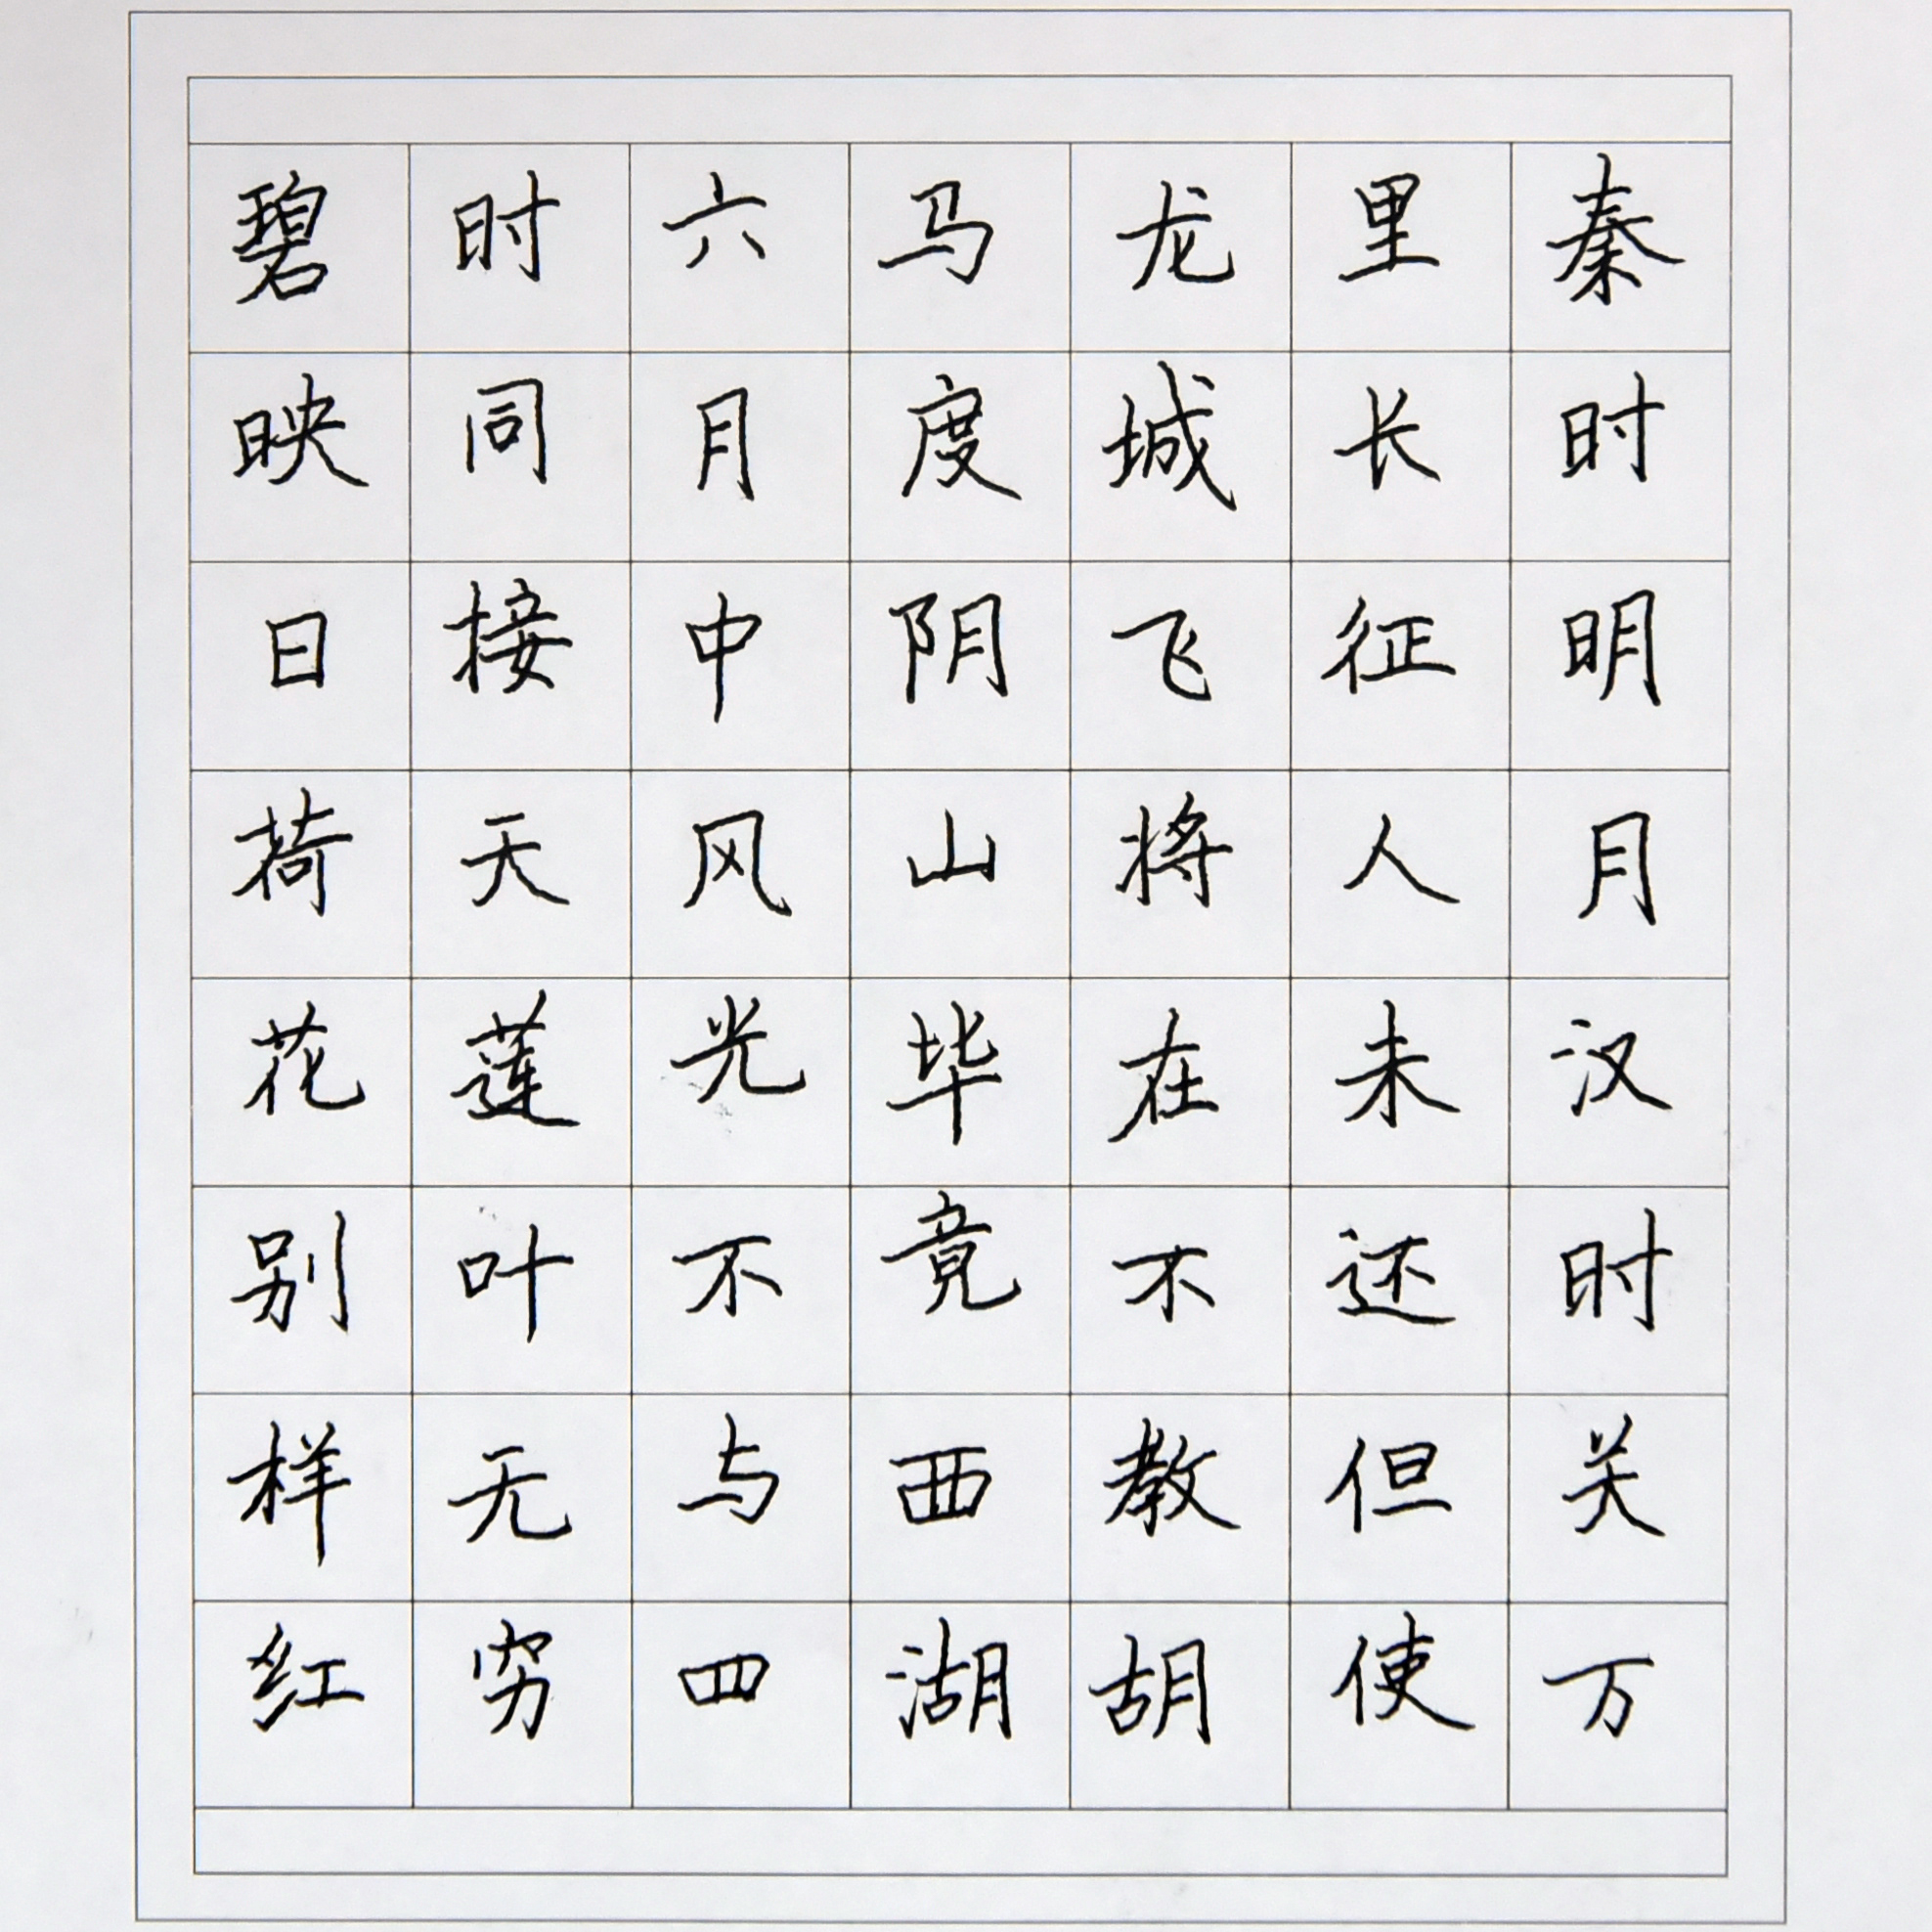 秦时明月汉时关万
里长征人未还但使
龙城飞将在不教胡
马度阴山毕竟西湖
六月中风光不与四
时同接天莲叶无穷
碧映日荷花别样红